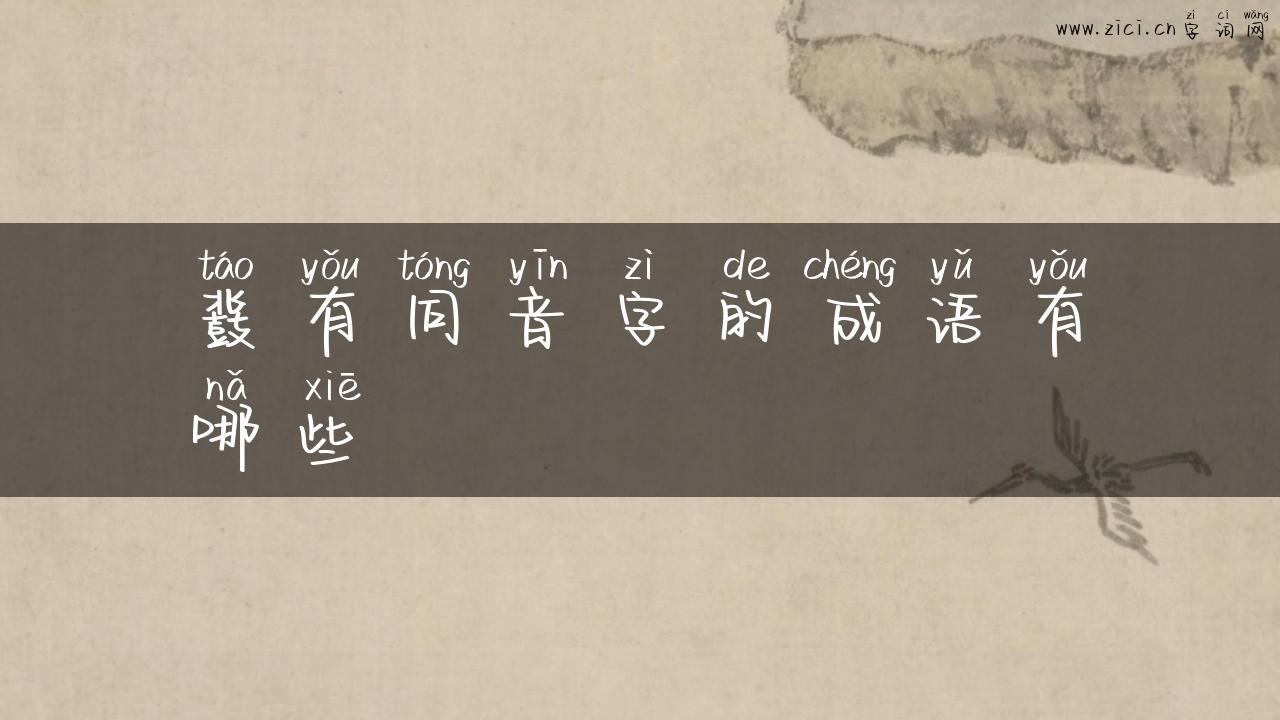 zì cí wǎng
www.zici.cn 字词网
táo yǒu tóng yīn zì de chéng yǔ yǒu
鼗有同音字的成语有
nǎ xiē
哪些